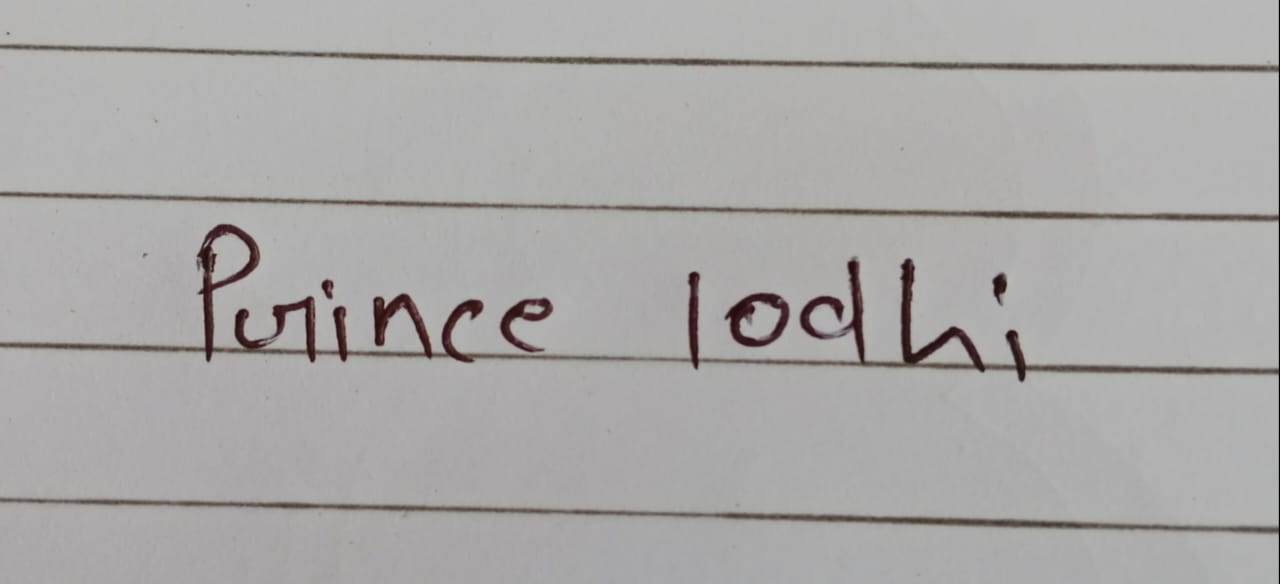 Prince lodhi